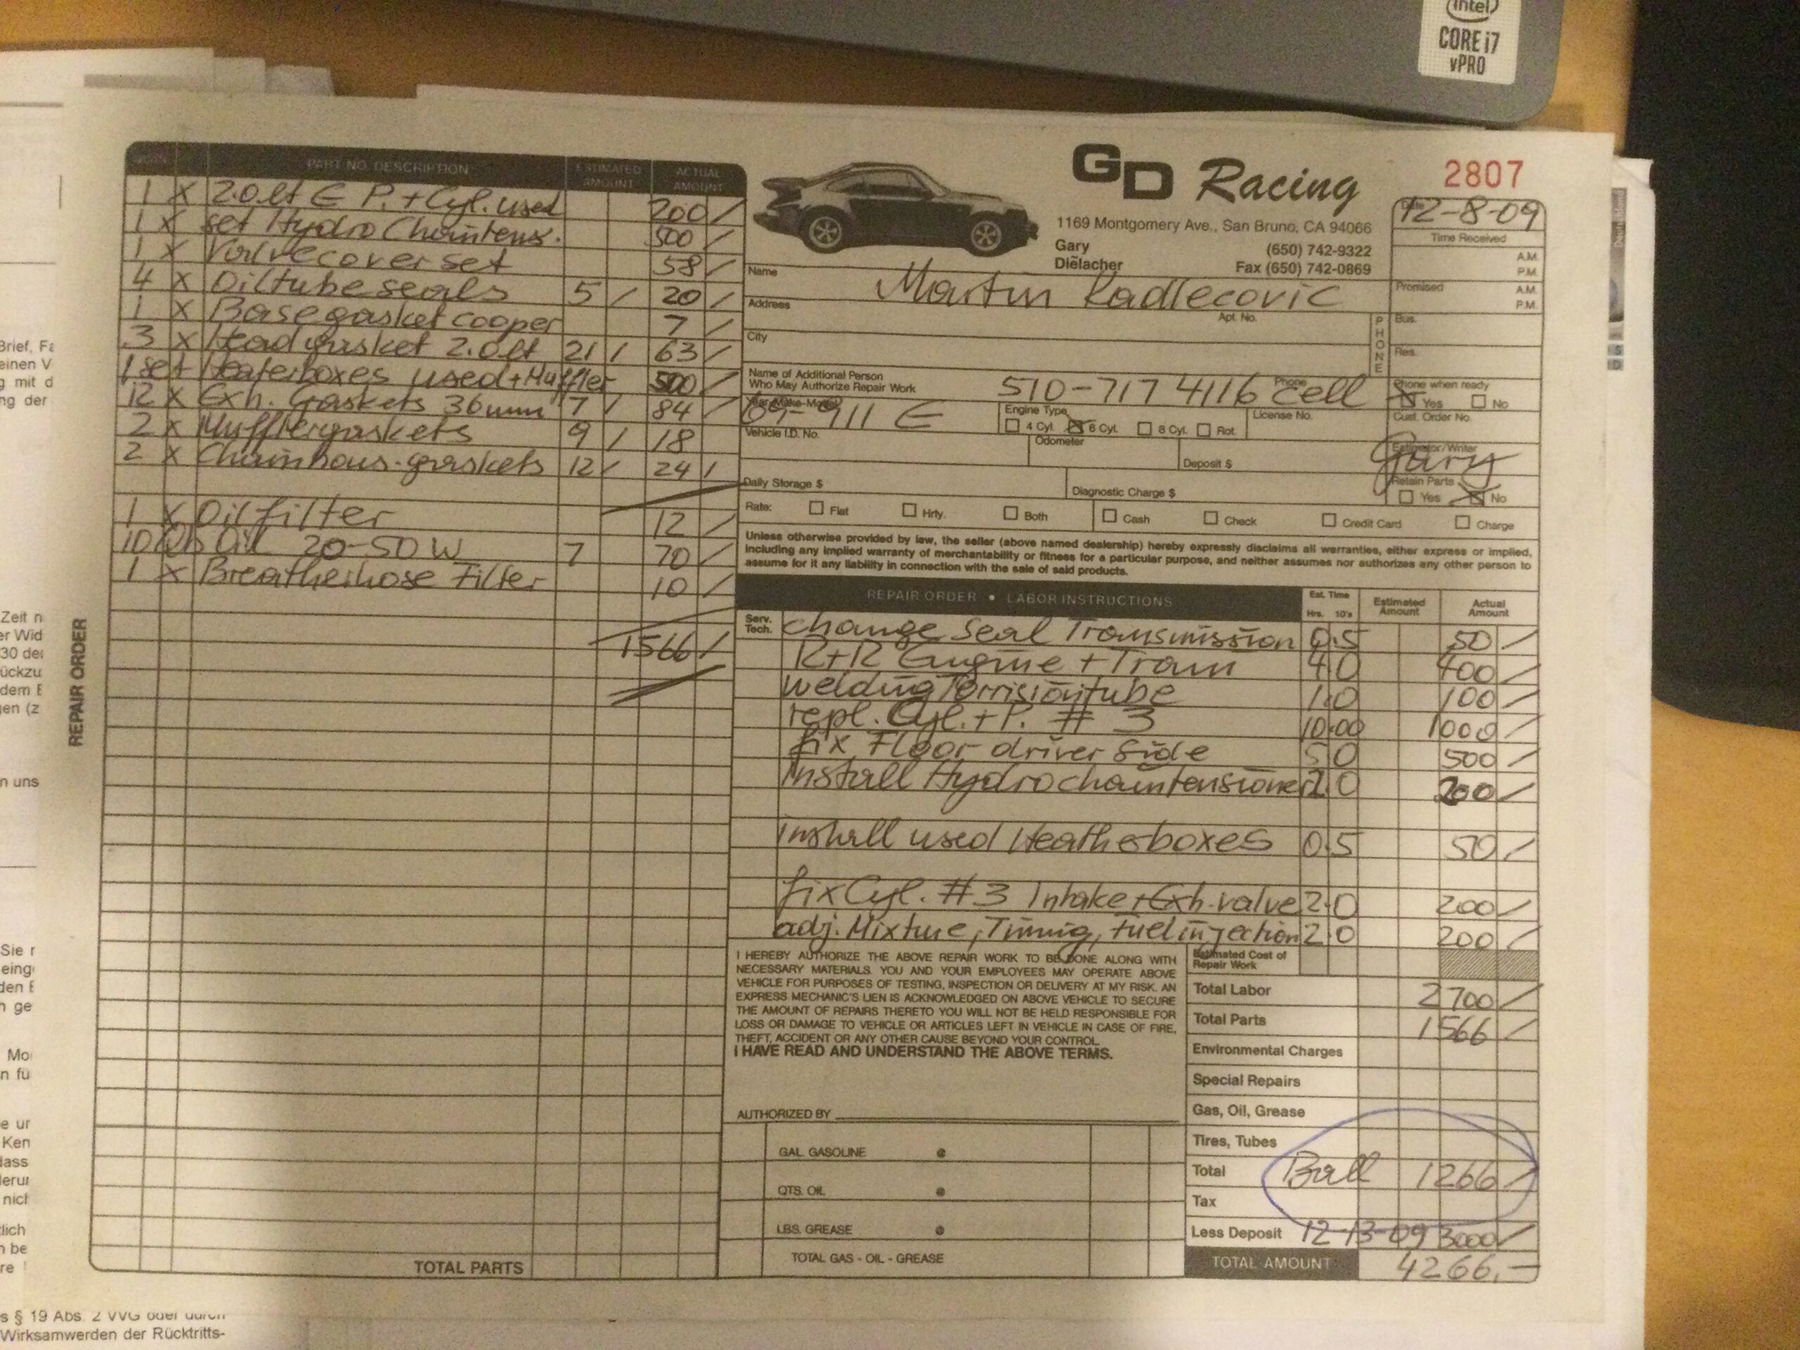 intel
CORE i7
vPRO
GD Racing
2807
1169 Montgomery Ave., San Bruno, CA 94066
Gary
Dielacher
(650) 742-9322
Fax (650) 742-0869
Date
12-8-09
Time Received
A.M.
P.M.
Promised
A.M.
P.M.
PART NO. DESCRIPTION
ESTIMATED AMOUNT
ACTUAL AMOUNT
1 X 2.0 lt E P. + Cyl. used 200/
1 X set Hydro Chaintens. 500/
1 X Valvecover set 58/
4 X Oiltubeseals 5/ 20/
1 X Basegasket cooper 7/
3 X Headgasket 2.0 lt 21/ 63/
1 set Heaterboxes used + Muffler 500/
12 X Exh. Gaskets 36mm 7/ 84/
2 X Mufflergaskets 9/ 18
2 X Chainhous-gaskets 12/ 24/
1 X Oilfilter 12/
10 Oil 20-50W 7 70/
1 X Breatherhose Filter 10/
1566/
REPAIR ORDER
TOTAL PARTS
Name
Martin Radlecovic
Address
Apt. No.
City
PHONE
Bus.
Res.
Name of Additional Person
Who May Authorize Repair Work
510-717 4116 cell
Phone
Phone when ready
Yes No
Year-Make-Model
69-911 E
Engine Type
4 Cyl. 6 Cyl. 8 Cyl. Rot.
License No.
Cust. Order No.
Vehicle I.D. No.
Odometer
Deposit $
Estimator/Writer
Gary
Retain Parts
Yes No
Daily Storage $
Diagnostic Charge $
Rate: Flat Hrly. Both Cash Check Credit Card Charge
Unless otherwise provided by law, the seller (above named dealership) hereby expressly disclaims all warranties, either express or implied,
including any implied warranty of merchantability or fitness for a particular purpose, and neither assumes nor authorizes any other person to
assume for it any liability in connection with the sale of said products.
REPAIR ORDER • LABOR INSTRUCTIONS
Est. Time
Hrs. 10's
Estimated Amount
Actual Amount
Serv. Tech.
change Seal Transmission 0.5 50/
R+R Engine + Trans 4.0 400/
welding Torrisiontube 1.0 100/
repl. Cyl. + P. # 3 10.00 1000/
fix Floor driver side 5.0 500/
install Hydrochaintensioner 2.0 200/
install used Heatherboxes 0.5 50/
fix Cyl. #3 Intake + Exh. valve 2.0 200/
adj. Mixture, Timing, Fuelinjection 2.0 200/
I HEREBY AUTHORIZE THE ABOVE REPAIR WORK TO BE DONE ALONG WITH
NECESSARY MATERIALS. YOU AND YOUR EMPLOYEES MAY OPERATE ABOVE
VEHICLE FOR PURPOSES OF TESTING, INSPECTION OR DELIVERY AT MY RISK. AN
EXPRESS MECHANIC'S LIEN IS ACKNOWLEDGED ON ABOVE VEHICLE TO SECURE
THE AMOUNT OF REPAIRS THERETO YOU WILL NOT BE HELD RESPONSIBLE FOR
LOSS OR DAMAGE TO VEHICLE OR ARTICLES LEFT IN VEHICLE IN CASE OF FIRE,
THEFT, ACCIDENT OR ANY OTHER CAUSE BEYOND YOUR CONTROL.
I HAVE READ AND UNDERSTAND THE ABOVE TERMS.
AUTHORIZED BY
GAL. GASOLINE @
QTS. OIL @
LBS. GREASE @
TOTAL GAS - OIL - GREASE
Estimated Cost of Repair Work
Total Labor 2700/
Total Parts 1566/
Environmental Charges
Special Repairs
Gas, Oil, Grease
Tires, Tubes
Total Ball 1266/
Tax
Less Deposit 12-13-09 3000/
TOTAL AMOUNT 4266.-
s § 19 Abs. 2 VVG oder durch
Wirksamwerden der Rücktritts-